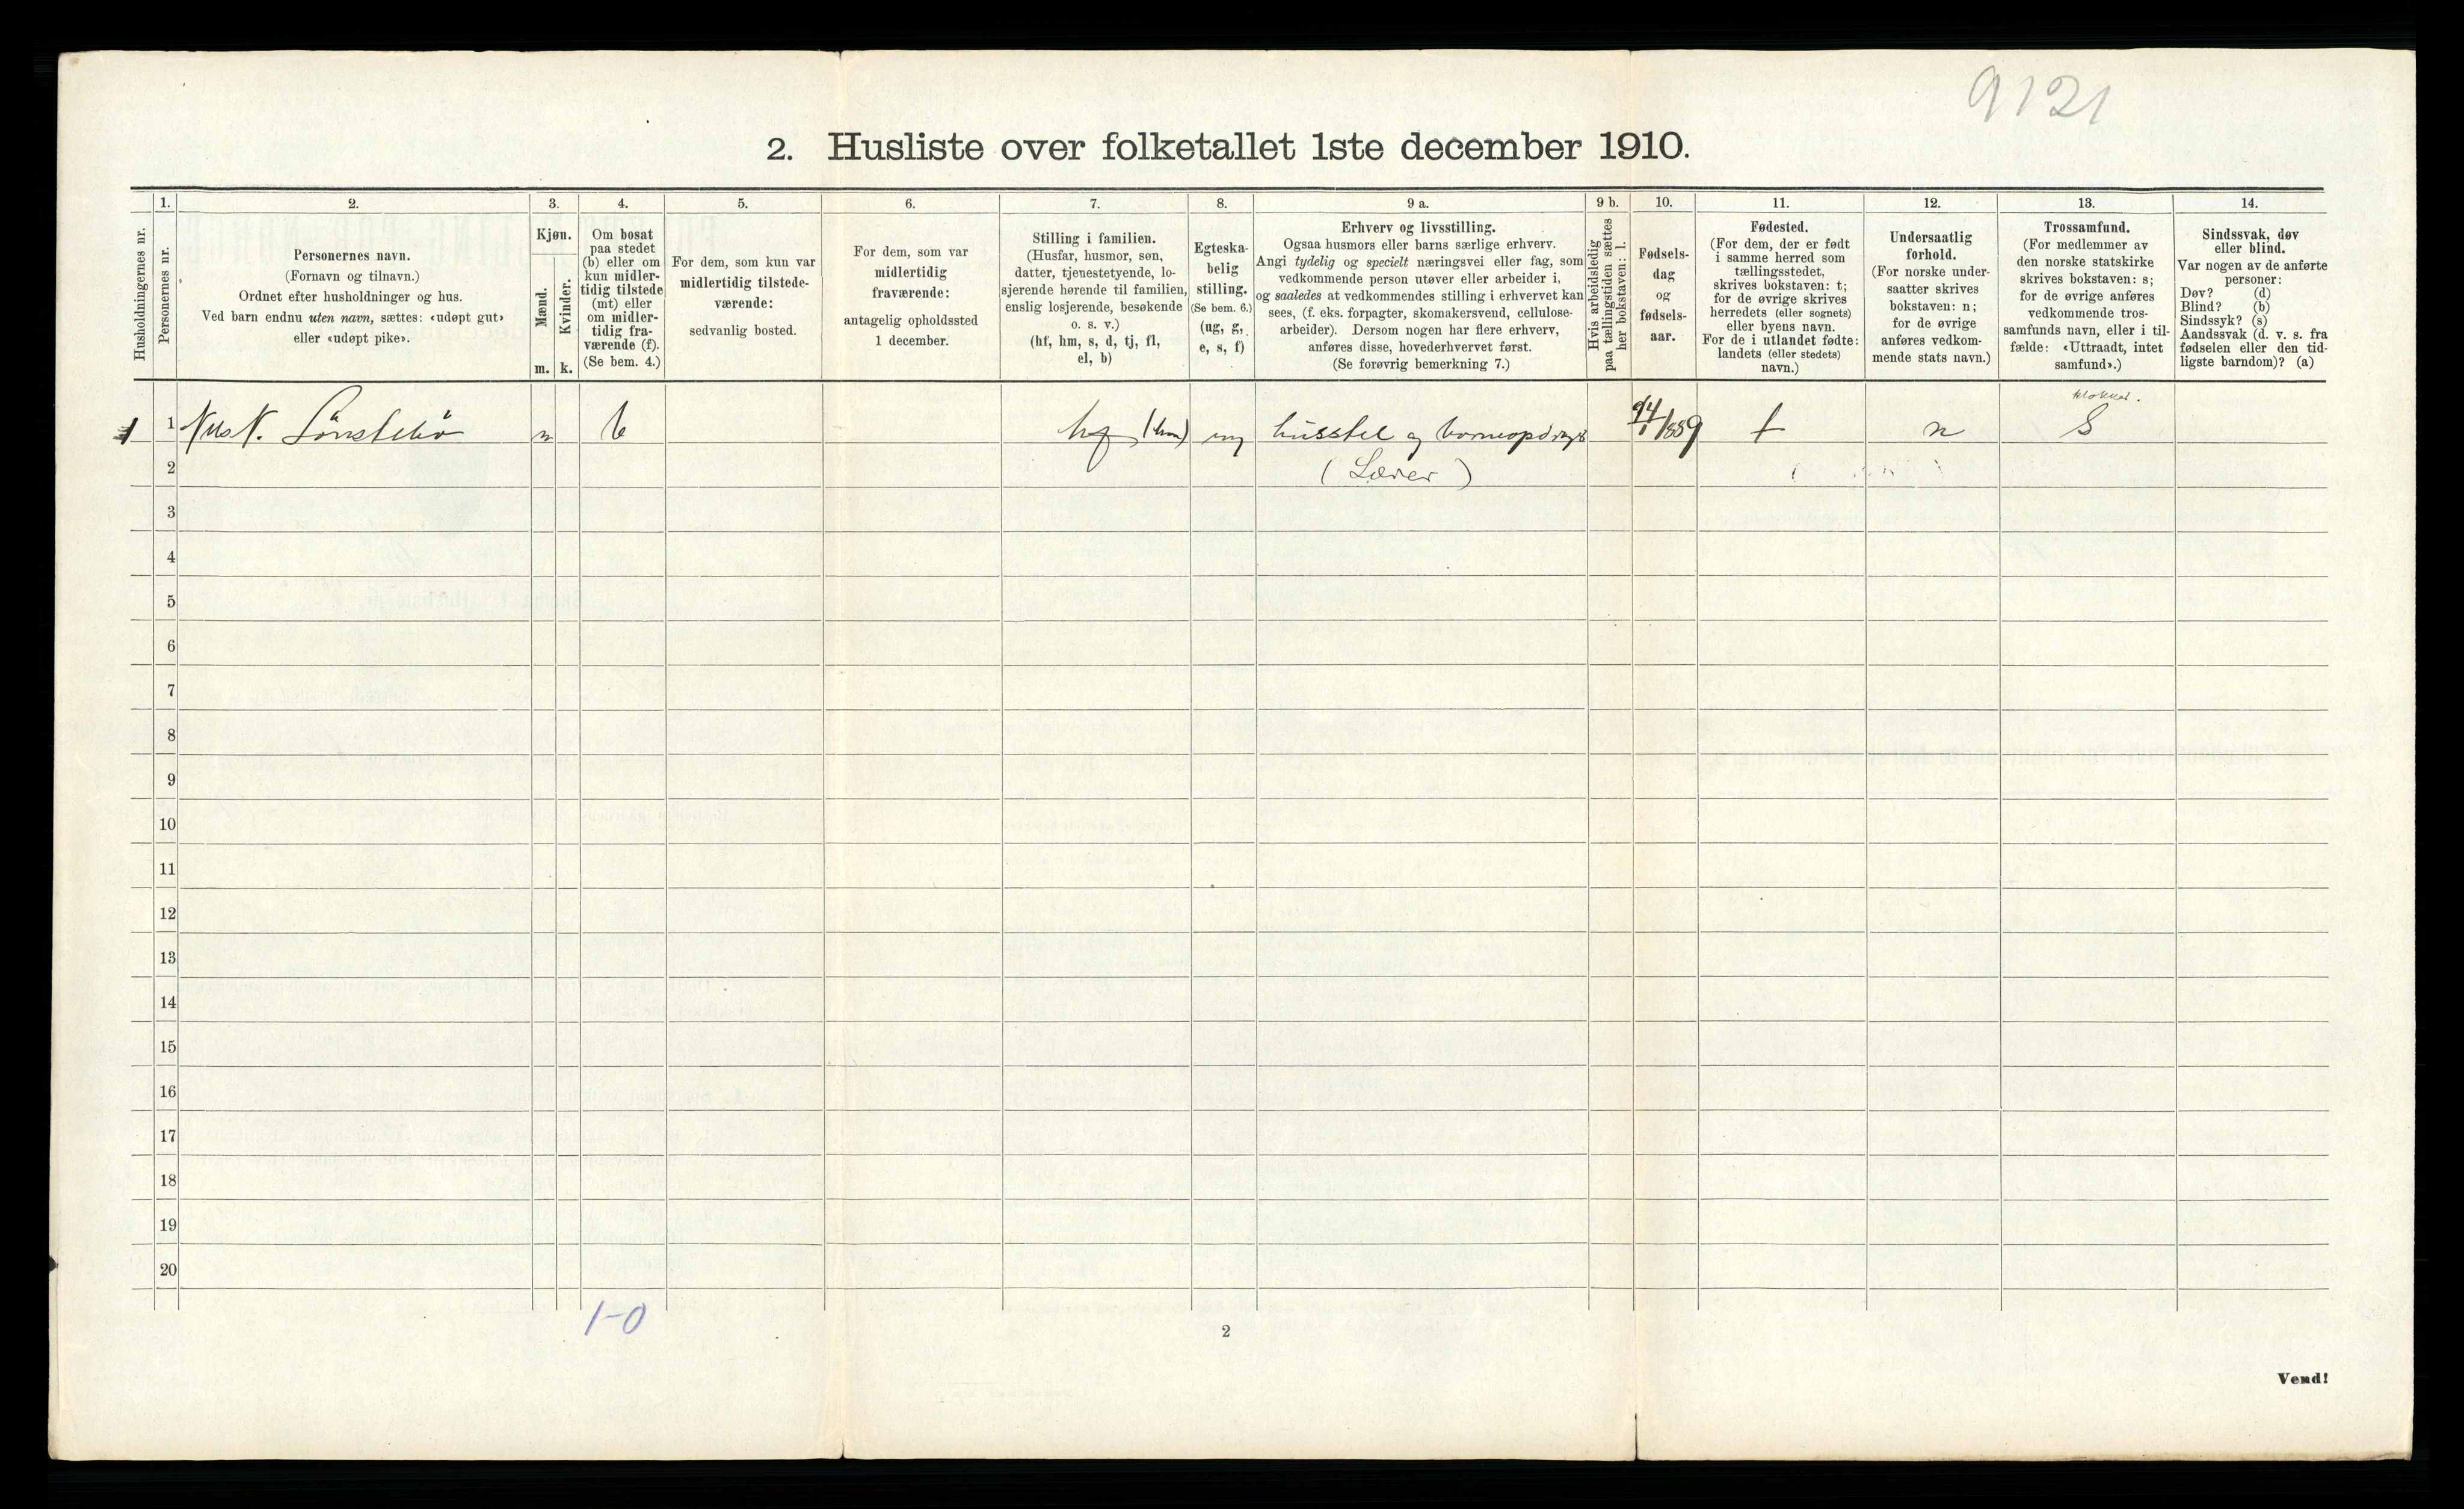 9121
2. Husliste over folketallet 1ste december 1910.
Husholdningernes nr.
1.
Personernes nr.
2.
Personernes navn.
(Fornavn og tilnavn.)
Ordnet efter husholdninger og hus.
Ved barn endnu uten navn, sættes: «udøpt gut»
eller «udøpt pike».
3.
Kjøn.
Mænd.
m.
Kvinder.
k.
4.
Om bosat
paa stedet
(b) eller om
kun midler-
tidig tilstede
(mt) eller
om midler-
tidig fra-
værende (f).
(Se bem. 4.)
5.
For dem, som kun var
midlertidig tilstede-
værende:
sedvanlig bosted.
6.
For dem, som var
midlertidig
fraværende:
antagelig opholdssted
1 december.
7.
Stilling i familien.
(Husfar, husmor, søn,
datter, tjenestetyende, lo-
sjerende hørende til familien,
enslig losjerende, besøkende
o. s. v.)
(hf, hm, s, d, tj, fl,
el, b)
8.
Egteska-
belig
stilling.
(Se bem. 6.)
(ug, g,
e, s, f)
9 a.
Erhverv og livsstilling.
Ogsaa husmors eller barns særlige erhverv.
Angi tydelig og specielt næringsvei eller fag, som
vedkommende person utøver eller arbeider i,
og saaledes at vedkommendes stilling i erhvervet kan
sees, (f. eks. forpagter, skomakersvend, cellulose-
arbeider). Dersom nogen har flere erhverv,
anføres disse, hovederhvervet først.
(Se forøvrig bemerkning 7.)
9 b.
Hvis arbeidsledig
paa tællingstiden sættes
her bokstaven: l.
10.
Fødsels-
dag
og
fødsels-
aar.
11.
Fødested.
(For dem, der er født
i samme herred som
tællingsstedet,
skrives bokstaven: t;
for de øvrige skrives
herredets (eller sognets)
eller byens navn.
For de i utlandet fødte:
landets (eller stedets)
navn.)
12.
Undersaatlig
forhold.
(For norske under-
saatter skrives
bokstaven: n;
for de øvrige
anføres vedkom-
mende stats navn.)
13.
Trossamfund.
(For medlemmer av
den norske statskirke
skrives bokstaven: s;
for de øvrige anføres
vedkommende tros-
samfunds navn, eller i til-
fælde: «Uttraadt, intet
samfund».)
14.
Sindssvak, døv
eller blind.
Var nogen av de anførte
personer:
Døv? (d)
Blind? (b)
Sindssyk? (s)
Aandssvak (d. v. s. fra
fødselen eller den tid-
ligste barndom)? (a)
1 1 N. Sönstebö m b hf (hm) ug husstel og 1889 t n S
2 (Lærer)
3
4
5
6
7
8
9
10
11
12
13
14
15
16
17
18
19
20
1-0
2
Vend!